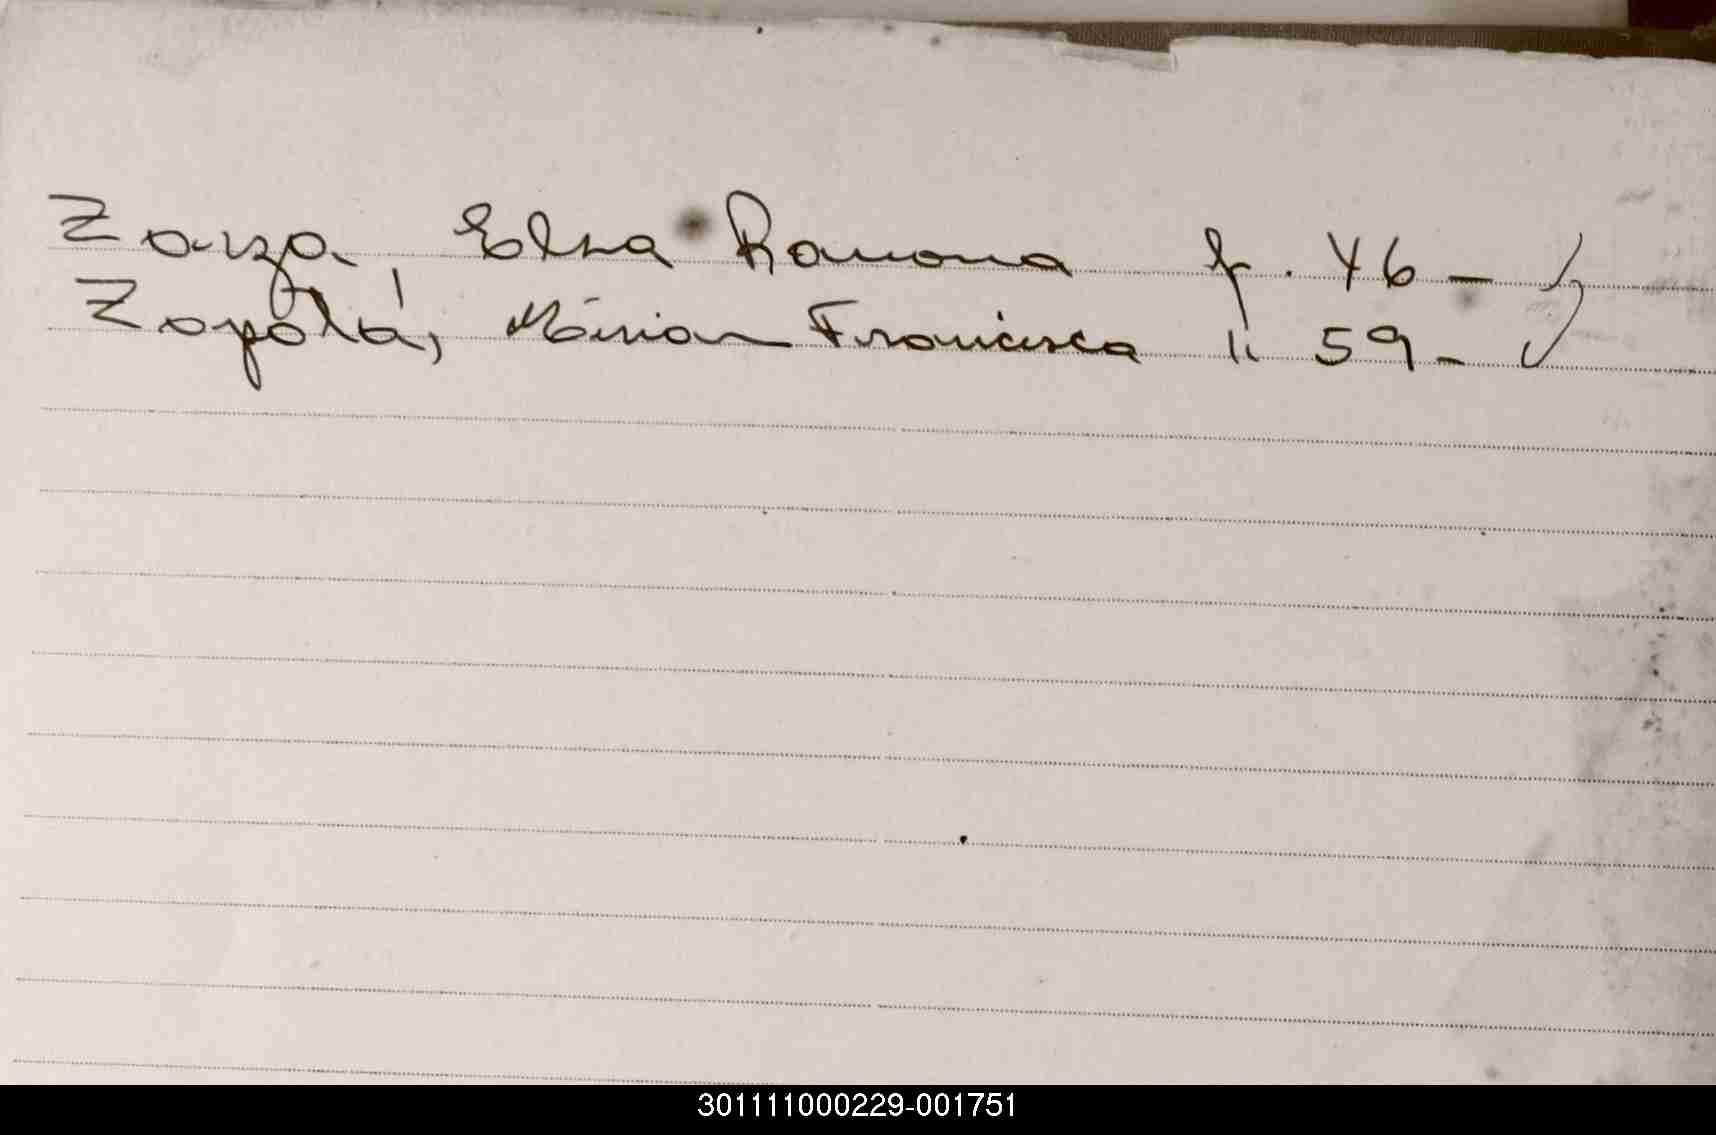 Zarza, Elsa Ramona f. 46 -
Zapata, Mirian Francisca " 59 -
301111000229-001751